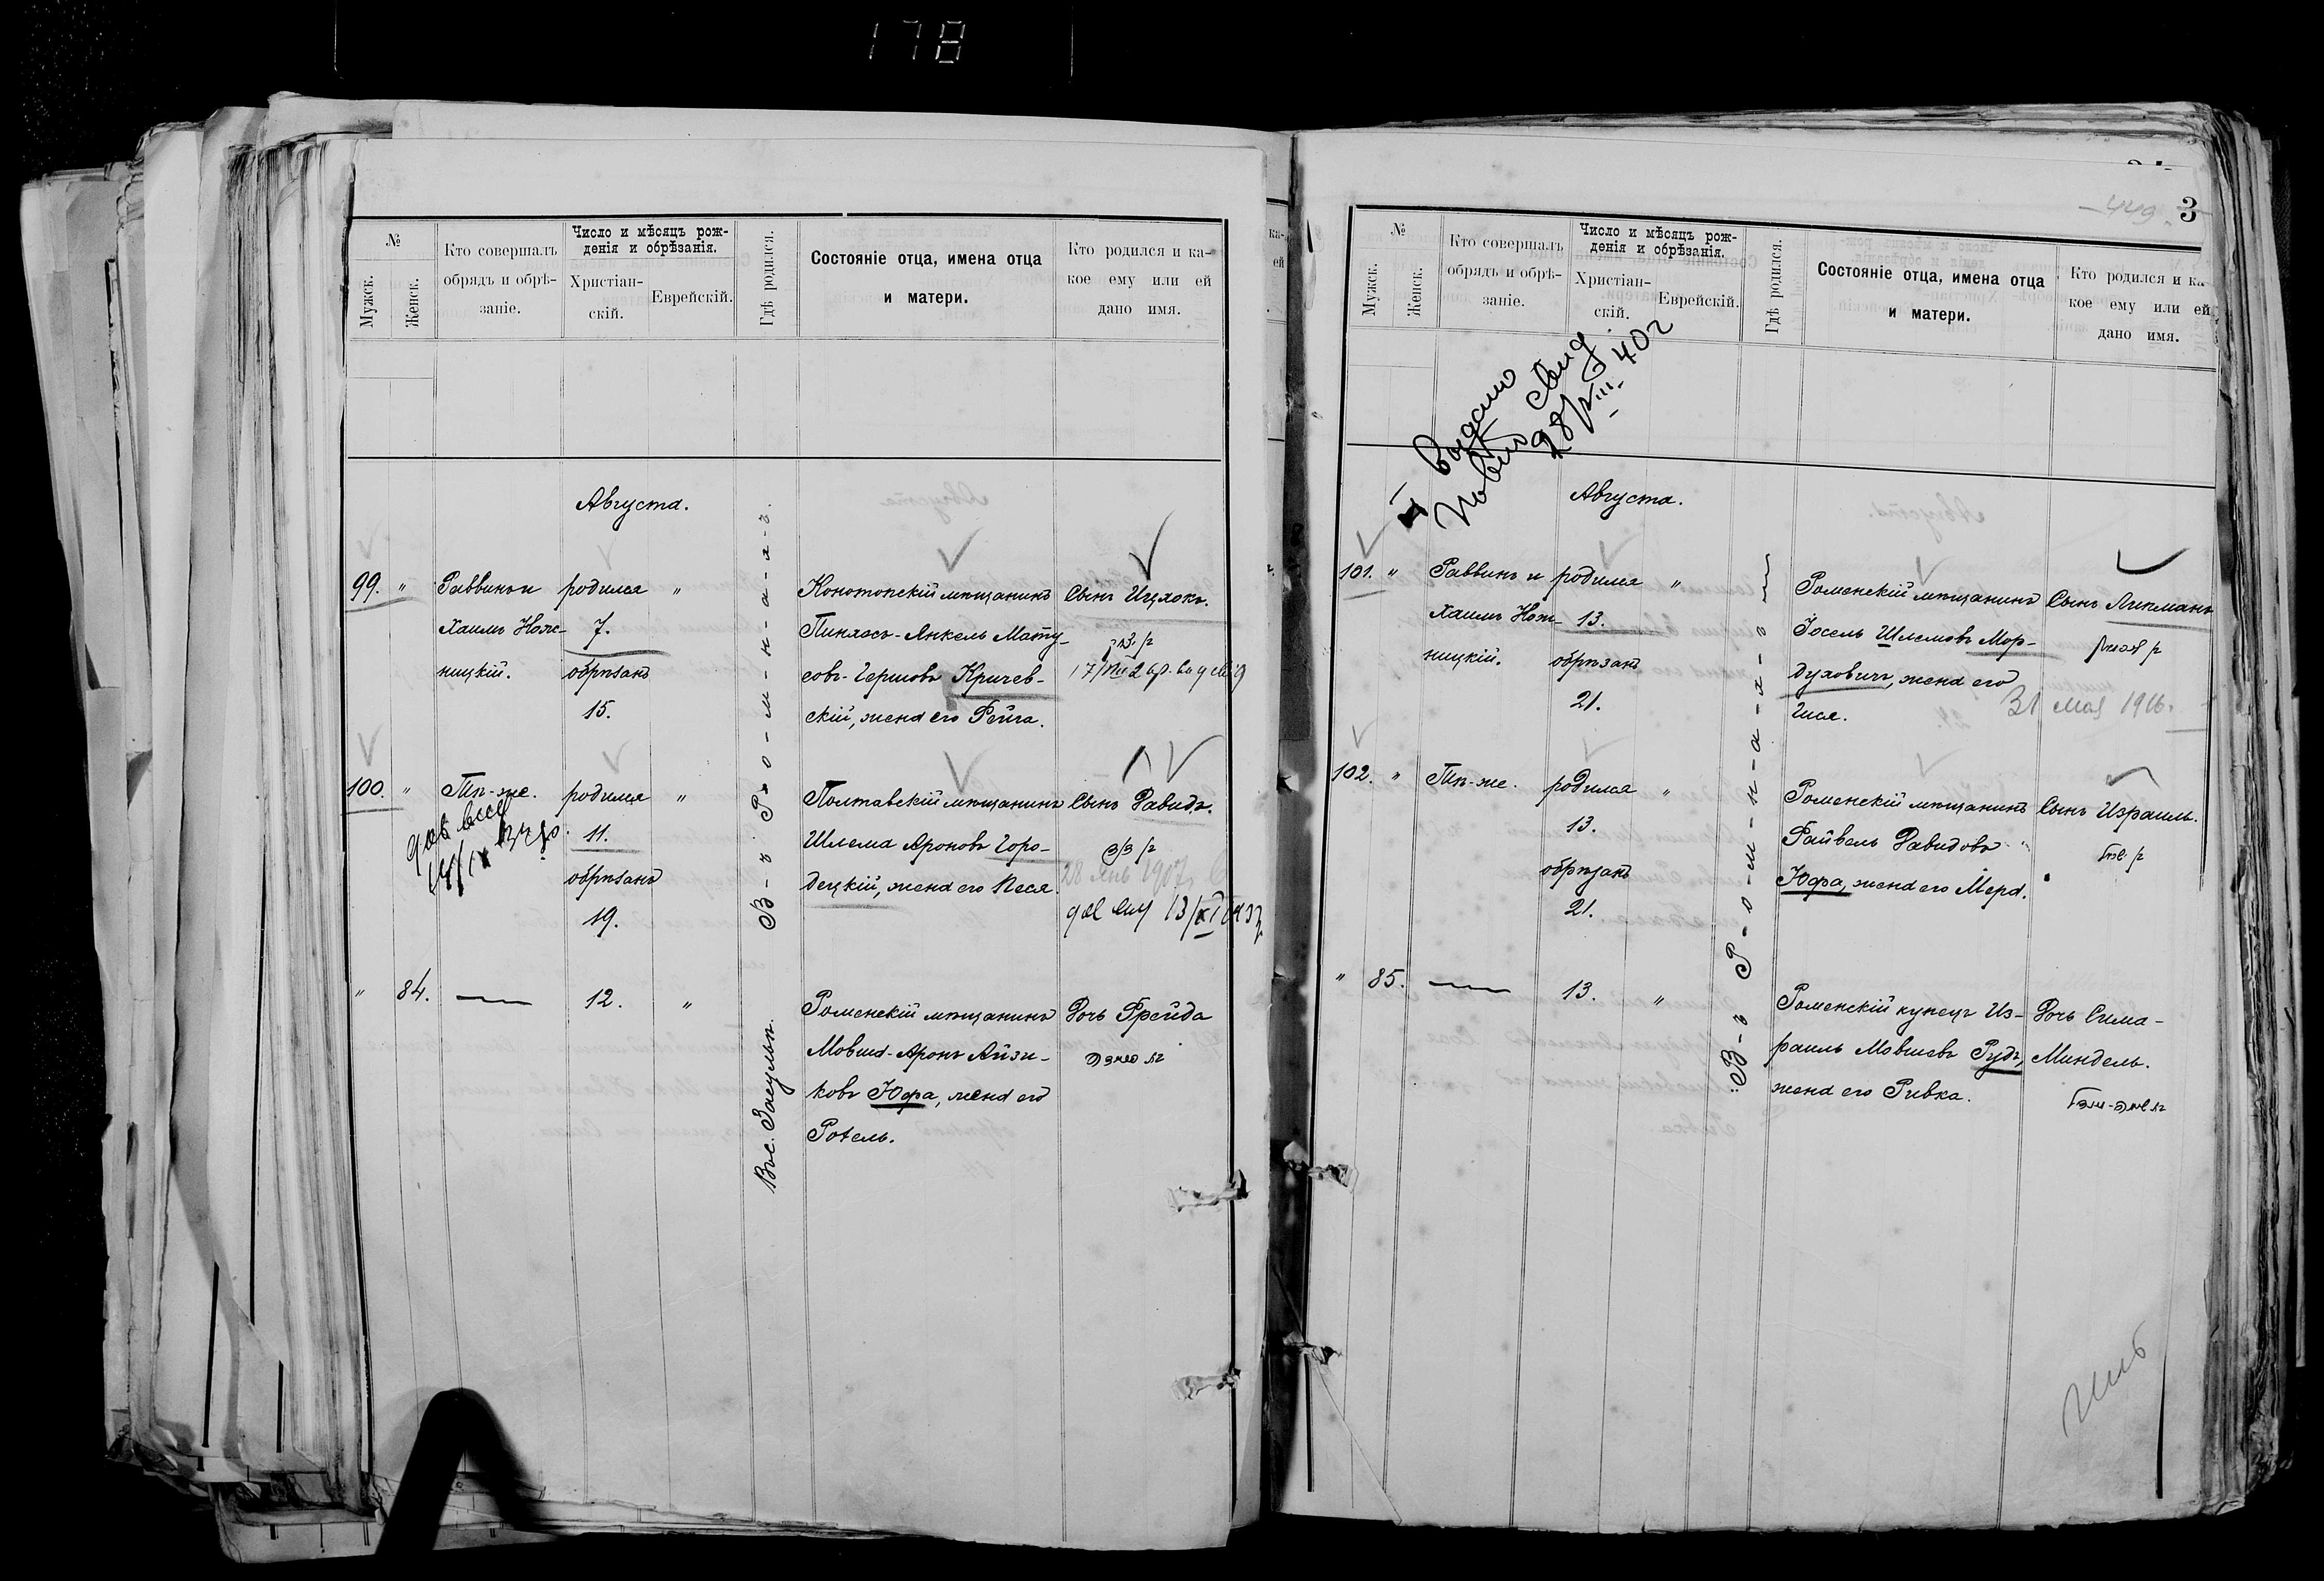 178
№
Мужск.
Женск.
Кто совершалъ
обрядъ и обрѣ-
заніе.
Число и мѣсяцъ рож-
денія и обрѣзанія.
Христіан-
скій.
Еврейскій.
Гдѣ родился.
Состояніе отца, имена отца
и матери.
Кто родился и ка-
кое ему или ей
дано имя.
Августа.
99. "
Раввинъ и
Хаимъ Нож-
ницкій.
родился
7.
обрѣзанъ
15.
"
В-ъ Р-о-м-н-а-х-ъ.
Конотопскій мѣщанинъ
Пинхасъ-Янкель Мату-
совъ-Гершовъ Кричев-
скій, жена его Рейга.
Сынъ Ицхокъ.
100. "
Тѣ-же.
родился
11.
обрѣзанъ
19.
"
Полтавскій мѣщанинъ
Шлема Ароновъ Горо-
децкій, жена его Песя.
Сынъ Давидъ.
28 Янв 1907г
" 84.
12.
"
Вѣс. Засульи.
Роменскій мѣщанинъ
Мовша-Аронъ Айзи-
ковъ Юфа, жена его
Ротель.
Дочь Фрейда
3
449
№
Мужск.
Женск.
Кто совершалъ
обрядъ и обрѣ-
заніе.
Число и мѣсяцъ рож-
денія и обрѣзанія.
Христіан-
скій.
Еврейскій.
Гдѣ родился.
Состояніе отца, имена отца
и матери.
Кто родился и ка-
кое ему или ей
дано имя.
Выдано
повт свид
28/VIII-40г
Августа.
101. "
Раввинъ и
Хаимъ Нож-
ницкій.
родился
13.
обрѣзанъ
21.
"
В-ъ Р-о-м-н-а-х-ъ
Роменскій мѣщанинъ
Іосель Шлемовъ Мор-
духовичъ, жена его
Гися.
Сынъ Липманъ
31 мая 1916.
102. "
Тѣ-же.
родился
13.
обрѣзанъ
21.
"
Роменскій мѣщанинъ
Файвель Давидовъ
Юфа, жена его Мера.
Сынъ Израиль.
" 85.
13.
"
Роменскій купецъ Из-
раиль Мовшевъ Рудъ,
жена его Ривка.
Дочь Сима-
Миндель.